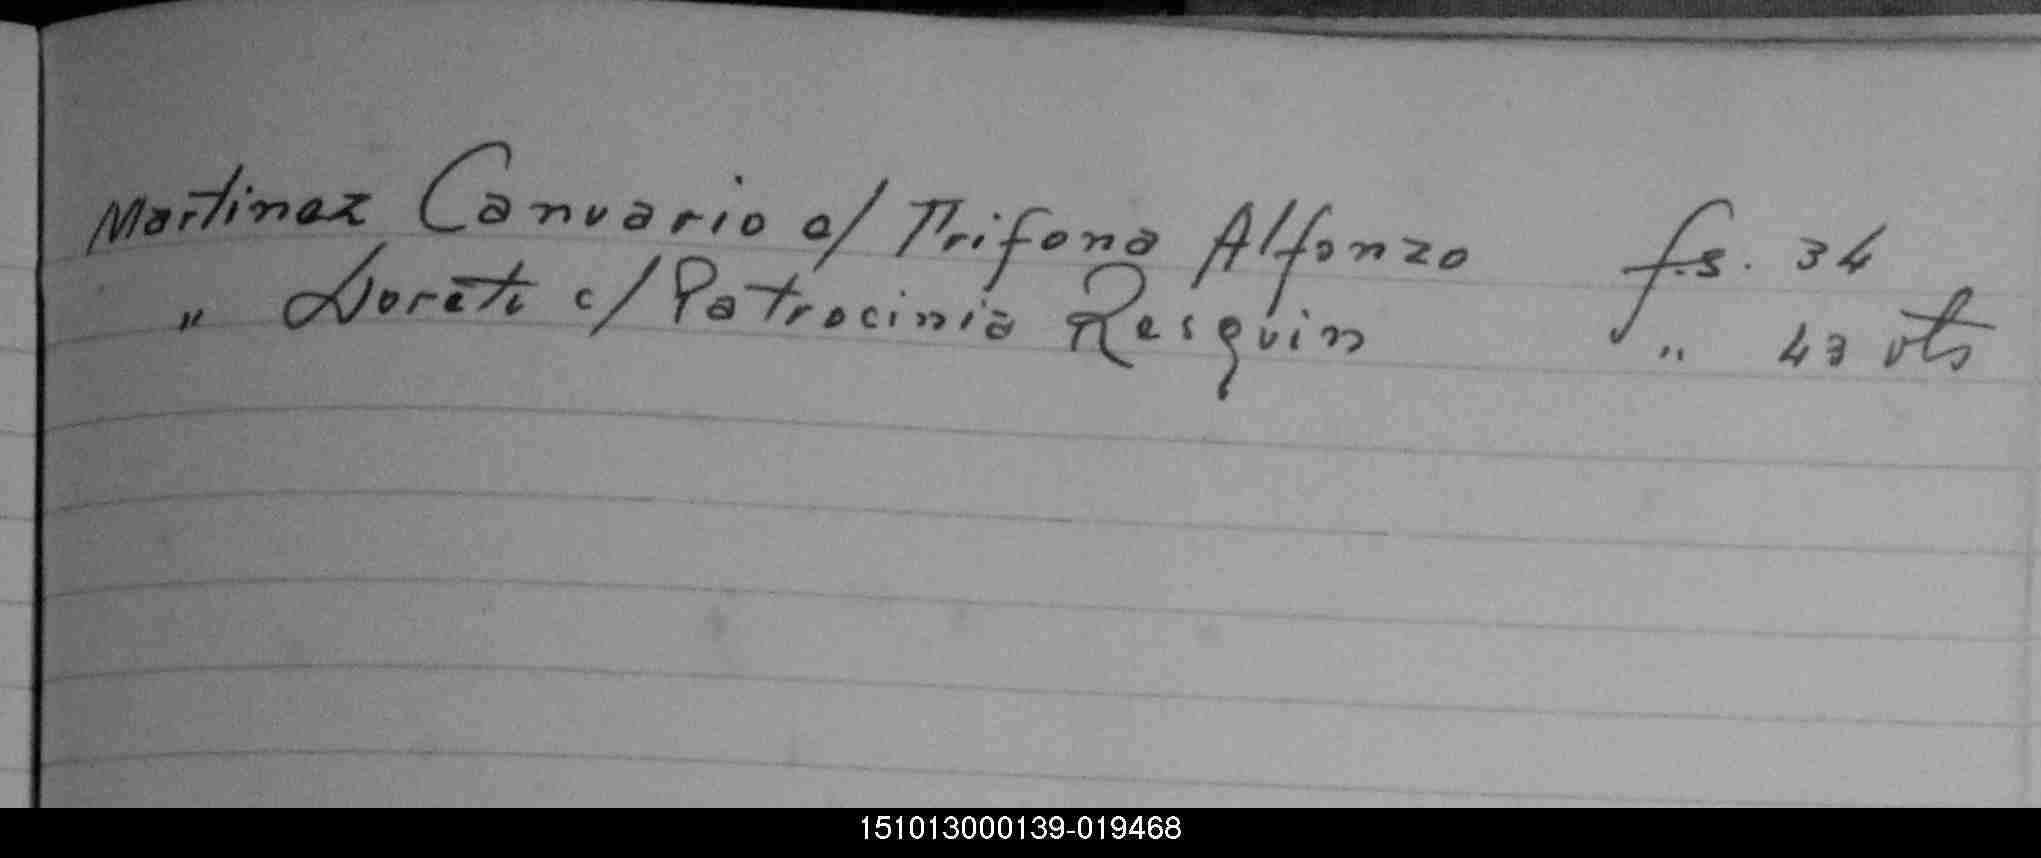 Martinez Canuario c/ Trifona Alfonzo fs. 34
" Loreto c/ Patrocinia Resquin " 43 vto
151013000139-019468